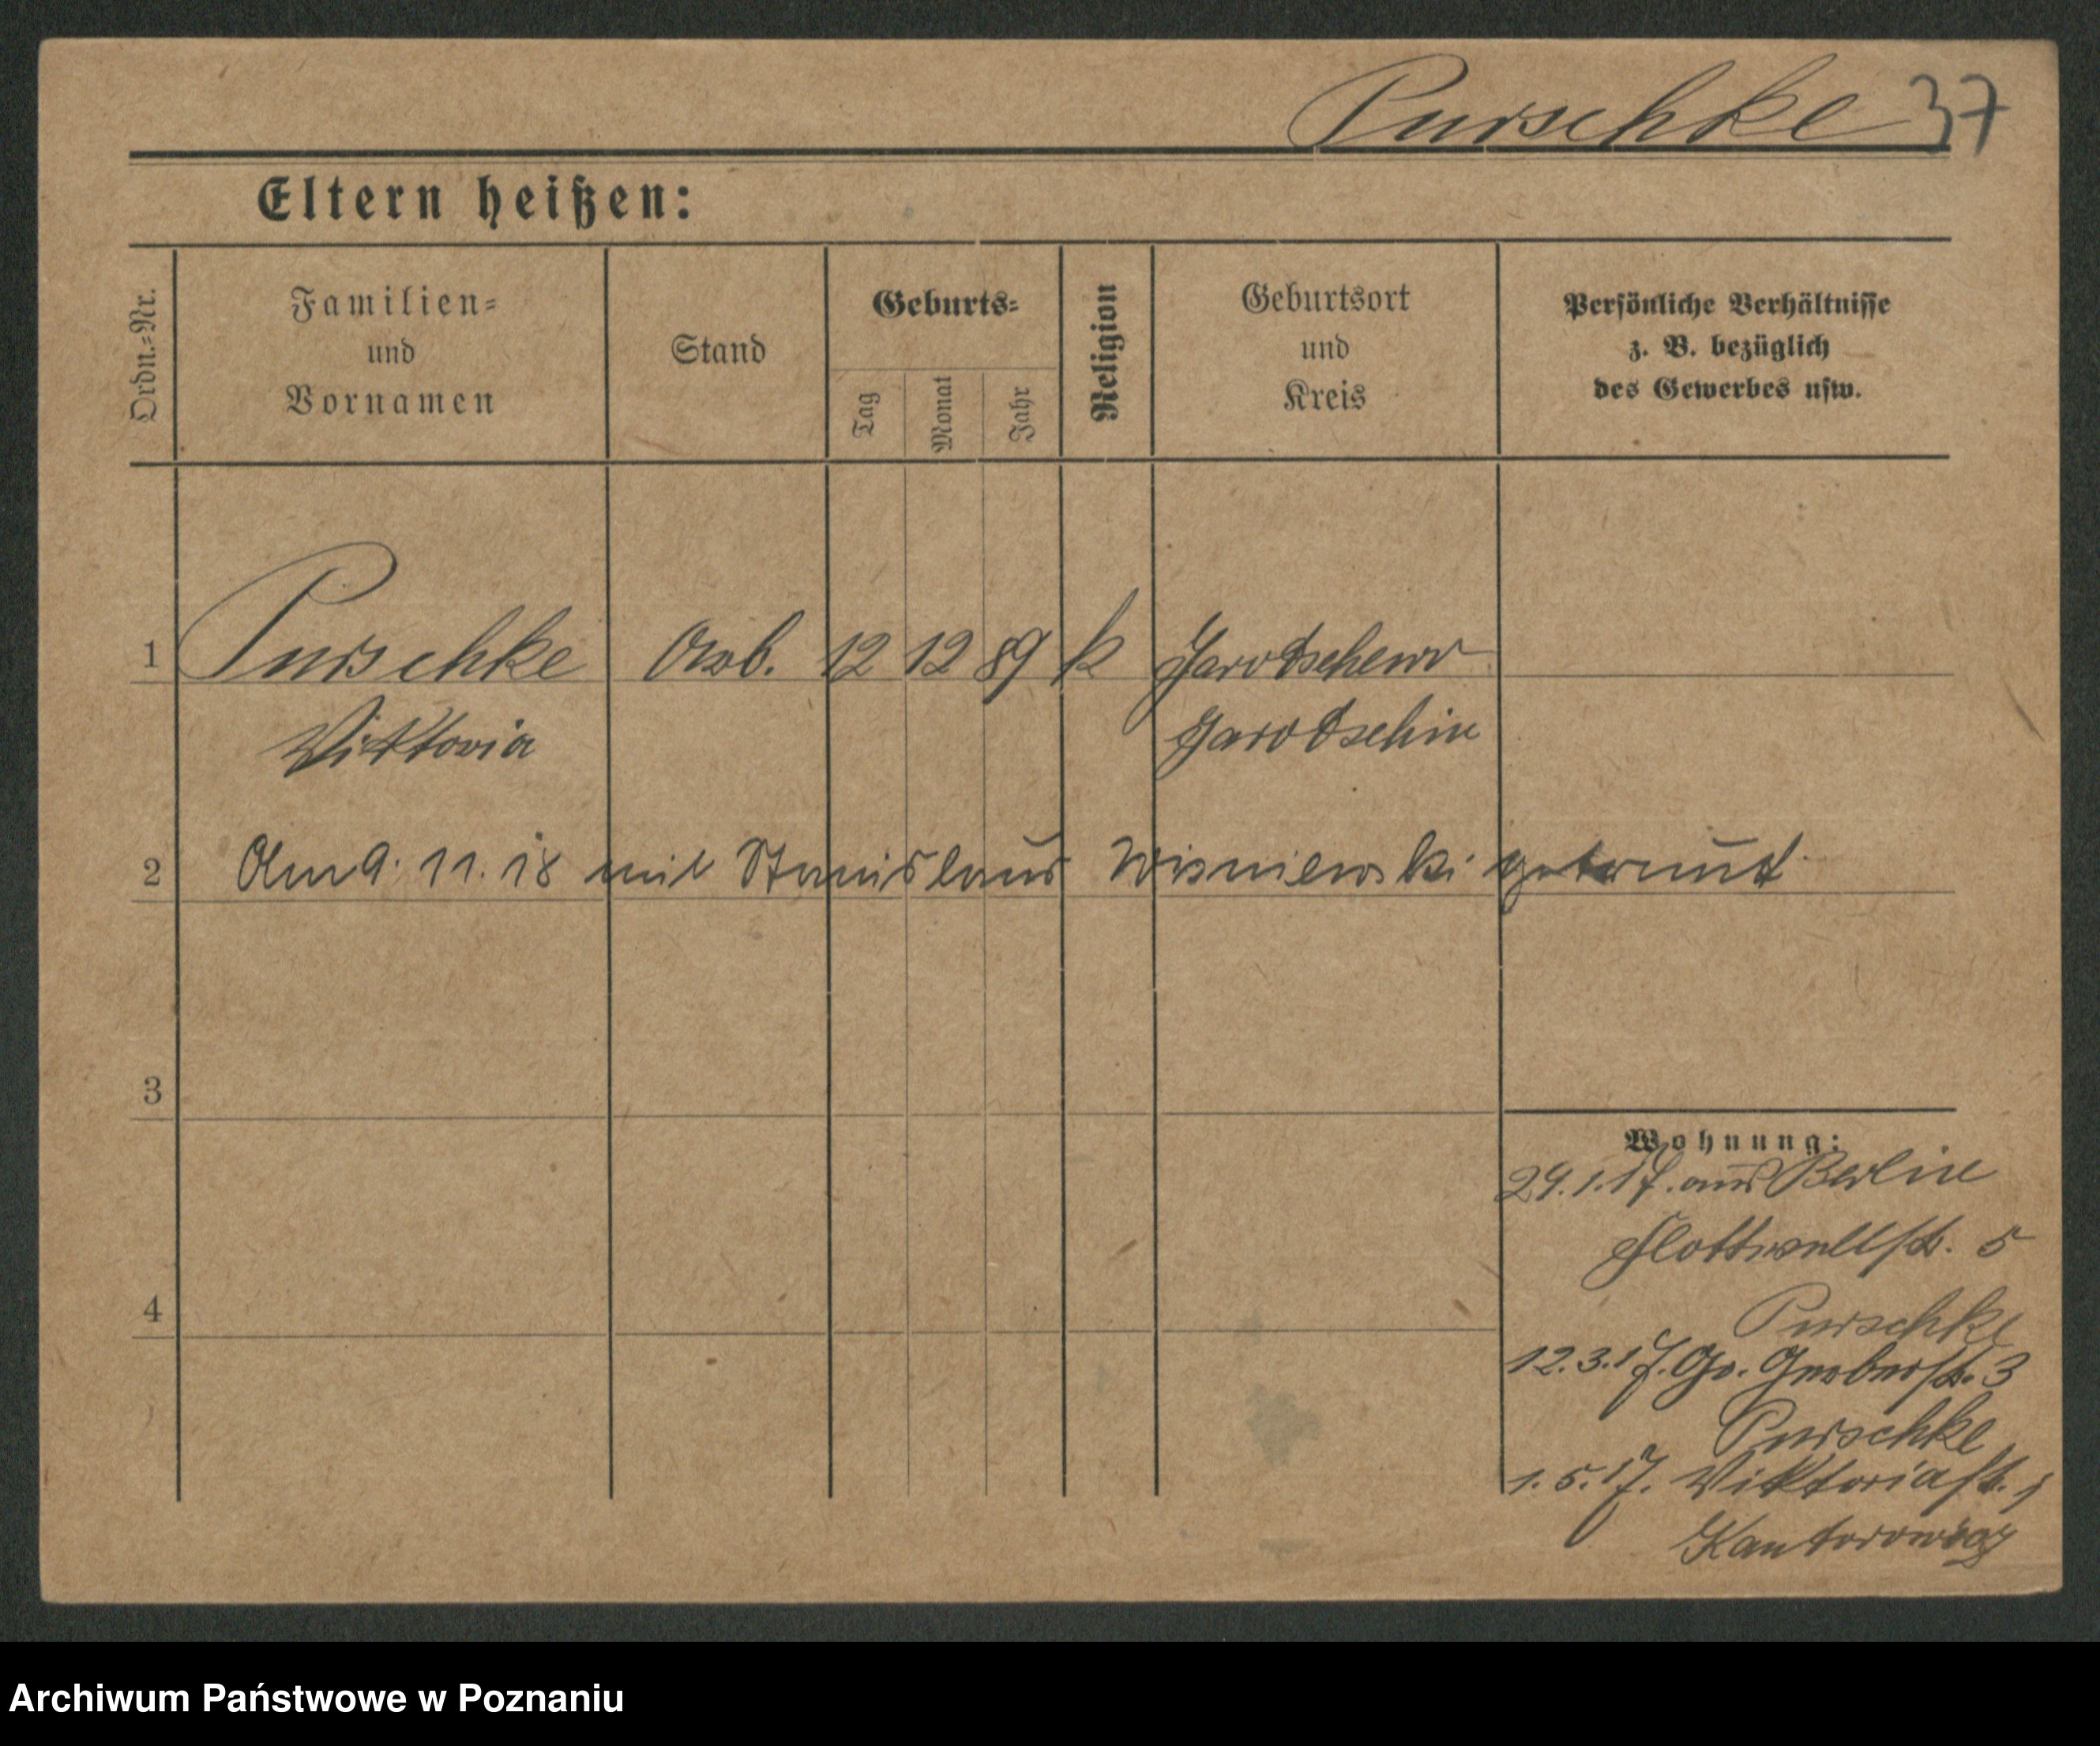 Purschke 37
Eltern heißen:
Ordn.=Nr.
Familien=
und
Vornamen
Stand
Geburts=
Tag
Monat
Jahr
Religion
Geburtsort
und
Kreis
Persönliche Verhältnisse
z. B. bezüglich
des Gewerbes usw.
1 Purschke Arb. 12 12 89 k
Viktoria Jarotschin
2 Am 9. 11. 18 mit Stanislaus Wisniewski getraut
3
4
Wohnung:
29.1.17. aus Berlin
Flottwellstr. 5
Purschke
12.3.17. Gr. Gerberstr. 3
Purschke
1.5.17. Viktoriastr.
Kantorowicz
Archiwum Państwowe w Poznaniu